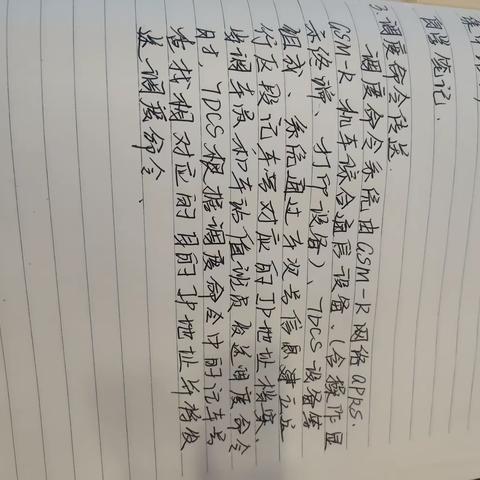 宵学笔记.
3.调度命令传送.
调度命令系统由GSM-R网络GPRS.
GSM-R机车综合通信设备、(含操作显
示终端、打印设备)、TDCS设备等
组成、系统通过车次号信息建立并
行区段记车号对应的IP地址档案、
当调车员和车站值班员发送调度命令
时,TDCS根据调度命令中的记车号
查找相对应的目的IP地址并将发
送调度命令、